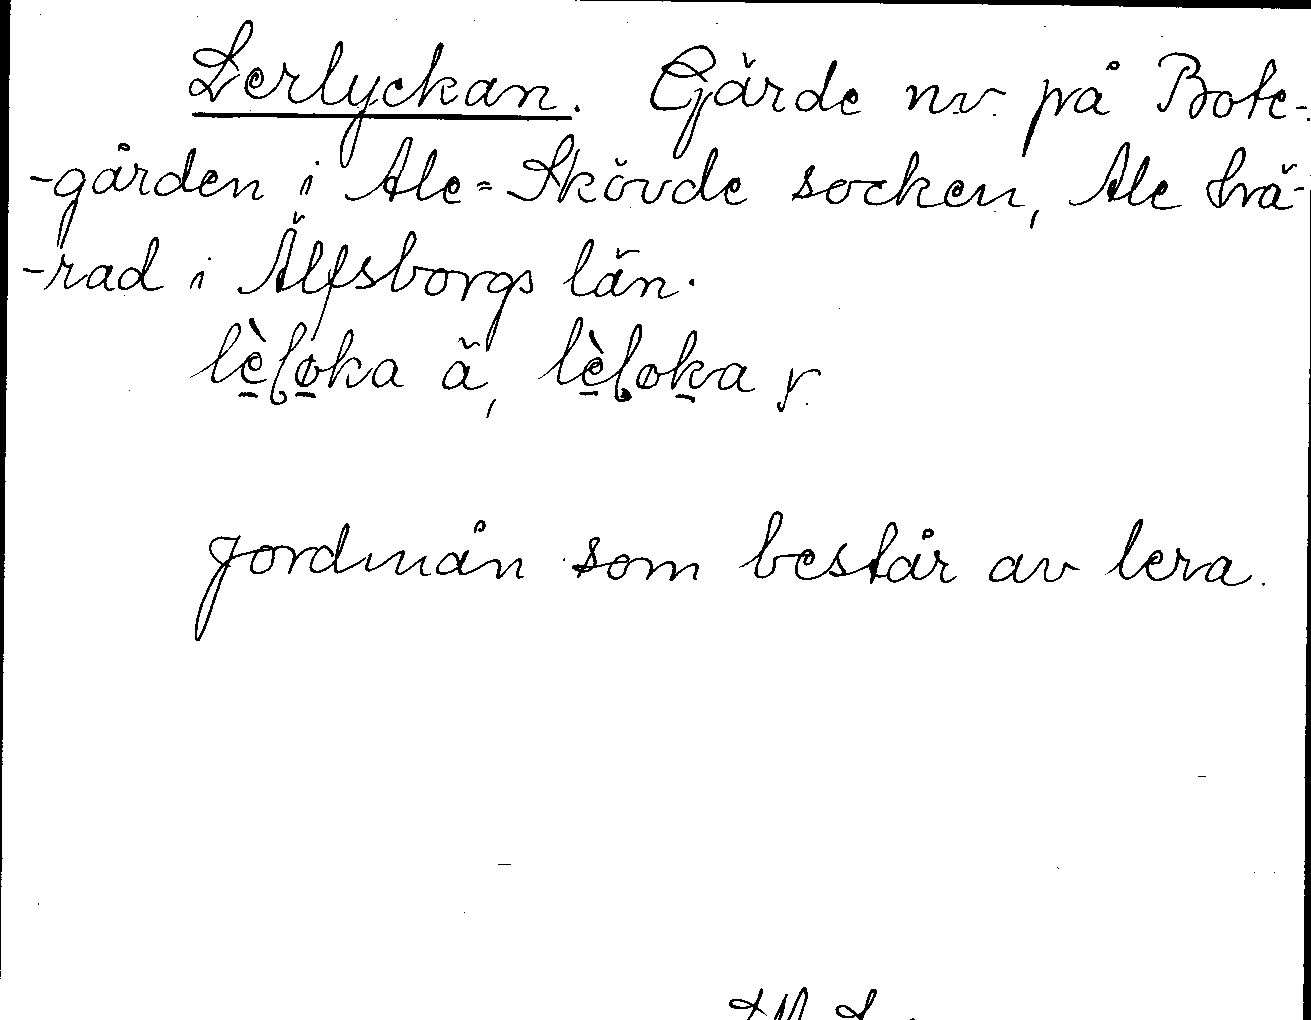 Lerlyckan. Gärde nv. på Bote-
-gården i Ale-Skövde socken, Ale hä-
-rad i Älfsborgs län.
lèloka ä, lèloka r.
Jordmån som består av lera.